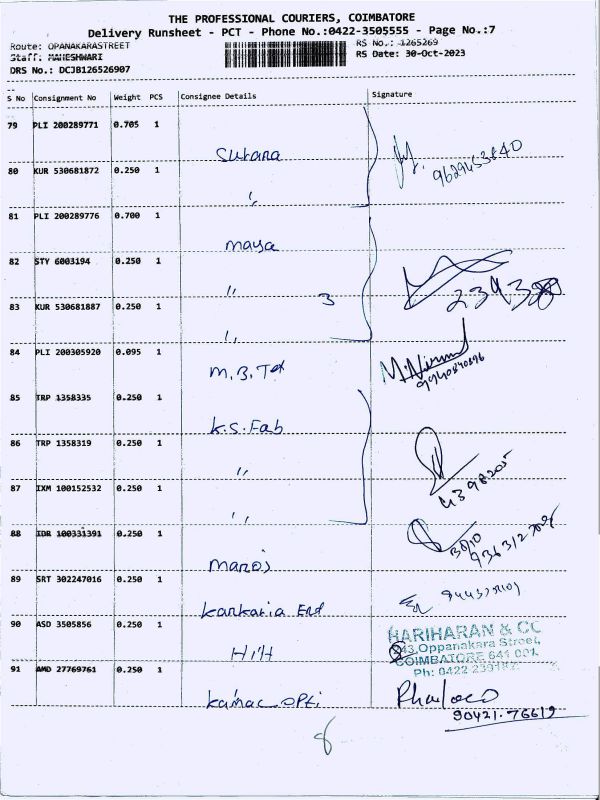 THE PROFESSIONAL COURIERS, COIMBATORE
Delivery Runsheet - PCT - Phone No.:0422-3505555 - Page No.:7
Route: OPANAKARASTREET
RS No.: 1265269
Staff: MAHESHWARI
RS Date: 30-Oct-2023
DRS No.: DCJB126526907
S No Consignment No Weight PCS Consignee Details Signature
79 PLI 200289771 0.705 1
Suhana
9629453840
80 KUR 530681872 0.250 1
"
81 PLI 200289776 0.700 1
maya
82 STY 6003194 0.250 1
" 3
83 KUR 530681887 0.250 1
"
84 PLI 200305920 0.095 1
M.B.Tex
85 TRP 1358335 0.250 1
K.S.Fab
86 TRP 1358319 0.250 1
"
87 IXM 100152532 0.250 1
"
88 IDR 100331391 0.250 1
manoj
89 SRT 302247016 0.250 1
kankaria End
90 ASD 3505856 0.250 1
HIH
HARIHARAN & CO
243,Oppanakara Street,
COIMBATORE 641 001.
Ph: 0422
91 AMD 27769761 0.250 1
kamac opti
90421.76619
8